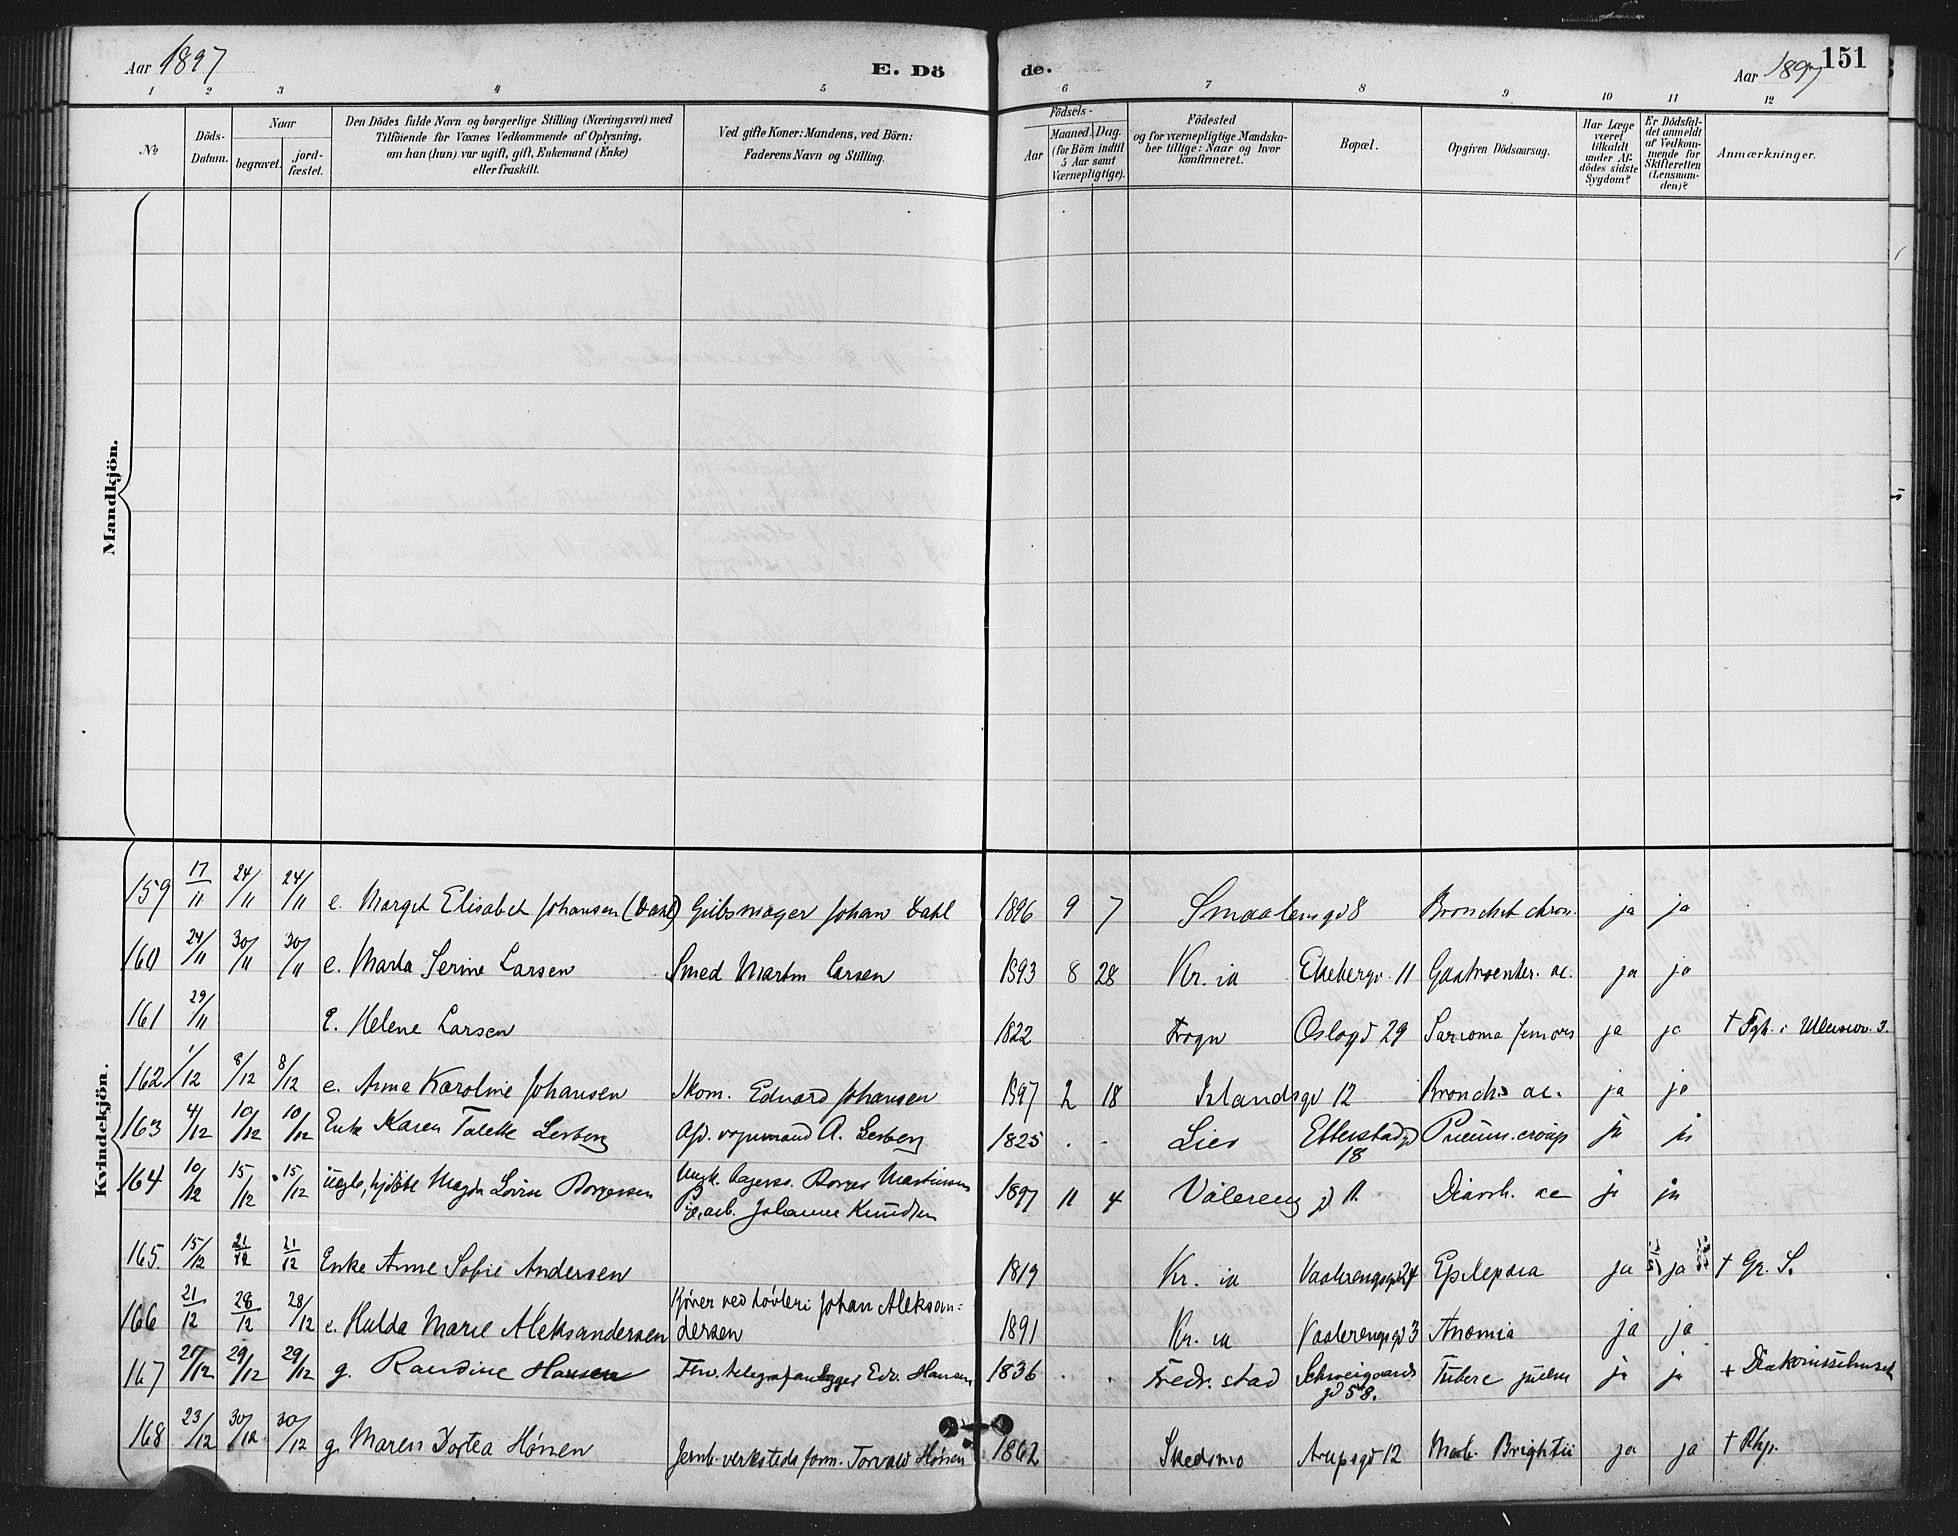 Aar 1897
E. Dö
de.
Aar 1897
151
1 2 3 4 5 6 7 8 9 10 11 12
№
Döds-
Datum.
Naar
begravet.
jord-
fæstet.
Den Dödes fulde Navn og borgerlige Stilling (Næringsvei) med
Tilföiende for Voxnes Vedkommende af Oplysning,
om han (hun) var ugift, gift, Enkemand (Enke)
eller fraskilt.
Ved gifte Koner: Mandens, ved Börn:
Faderens Navn og Stilling.
Födsels-
Aar
Maaned. Dag.
(for Börn indtil
5 Aar samt
Værnepligtige).
Födested
og for værnepligtige Mandska-
ber tillige: Naar og hvor
konfirmeret.
Bopæl.
Opgiven Dödsaarsag.
Har Læge
været
tilkaldt
under Af-
dödes sidste
Sygdom?
Er Dödsfal-
det anmeldt
af Vedkom-
mende for
Skifteretten
(Lensman-
den)?
Anmærkninger.
Mandkjön.
Kvindekjön.
159 17/11 24/11 24/11 e. Margit Elisabet Johansen (Dahl) Gibsmager Johan Dahl 1896 9 7 Smaalensgd 8 Bronchit chron. ja ja
160 24/11 30/11 30/11 e. Marta Serine Larsen Smed Martin Larsen 1893 8 28 Kr. ia Ekebergv. 11 Gastroenter. ac. ja ja
161 29/11 E. Helene Larsen 1822 Frogn Oslogd 29 Sarcoma femoris ja ja † Ullensv. 3.
162 1/12 8/12 8/12 e. Anna Karoline Johansen Skom. Edvard Johansen 1897 2 18 Islandsgd 12 Bronch. ac. ja ja
163 4/12 10/12 10/12 Enke Karen Talette Lerberg Afd. vognmand A. Lerberg 1825 . . Lier Etterstadgd 18 Pneum. croup ja ja
164 10/12 15/12 15/12 Magda Lovise Borgersen Borger Martinsen
arb. Johanne Knudsen 1897 11 4 Vålereng gd Diarrh. ac ja ja
165. 15/12 21/12 21/12 Enke Anne Sofie Andersen 1819 Kr. ia Vaalerengsgd 24 Epilepsia ja ja † Gr. S.
166 21/12 28/12 28/12 e. Hulda Marie Aleksandersen Kjører ved høvleri Johan Aleksan-
dersen 1891 Kr. ia Vaalerengsgd 3 Anæmia ja ja
167 21/12 29/12 29/12 g. Randine Hansen Fhv. telegrafanlægger Edv. Hansen 1836 . . Fredr. stad Schweigaards
gd 58. Tuberc pulm ja ja + Diakonissehuset
168 23/12 30/12 30/12 g. Maren Dortea Hønen Jernb. verksteds form. Torvald Hønen 1862 Skedsmo Arupsgd 12 Morb. Brightii ja ja † Rhp.